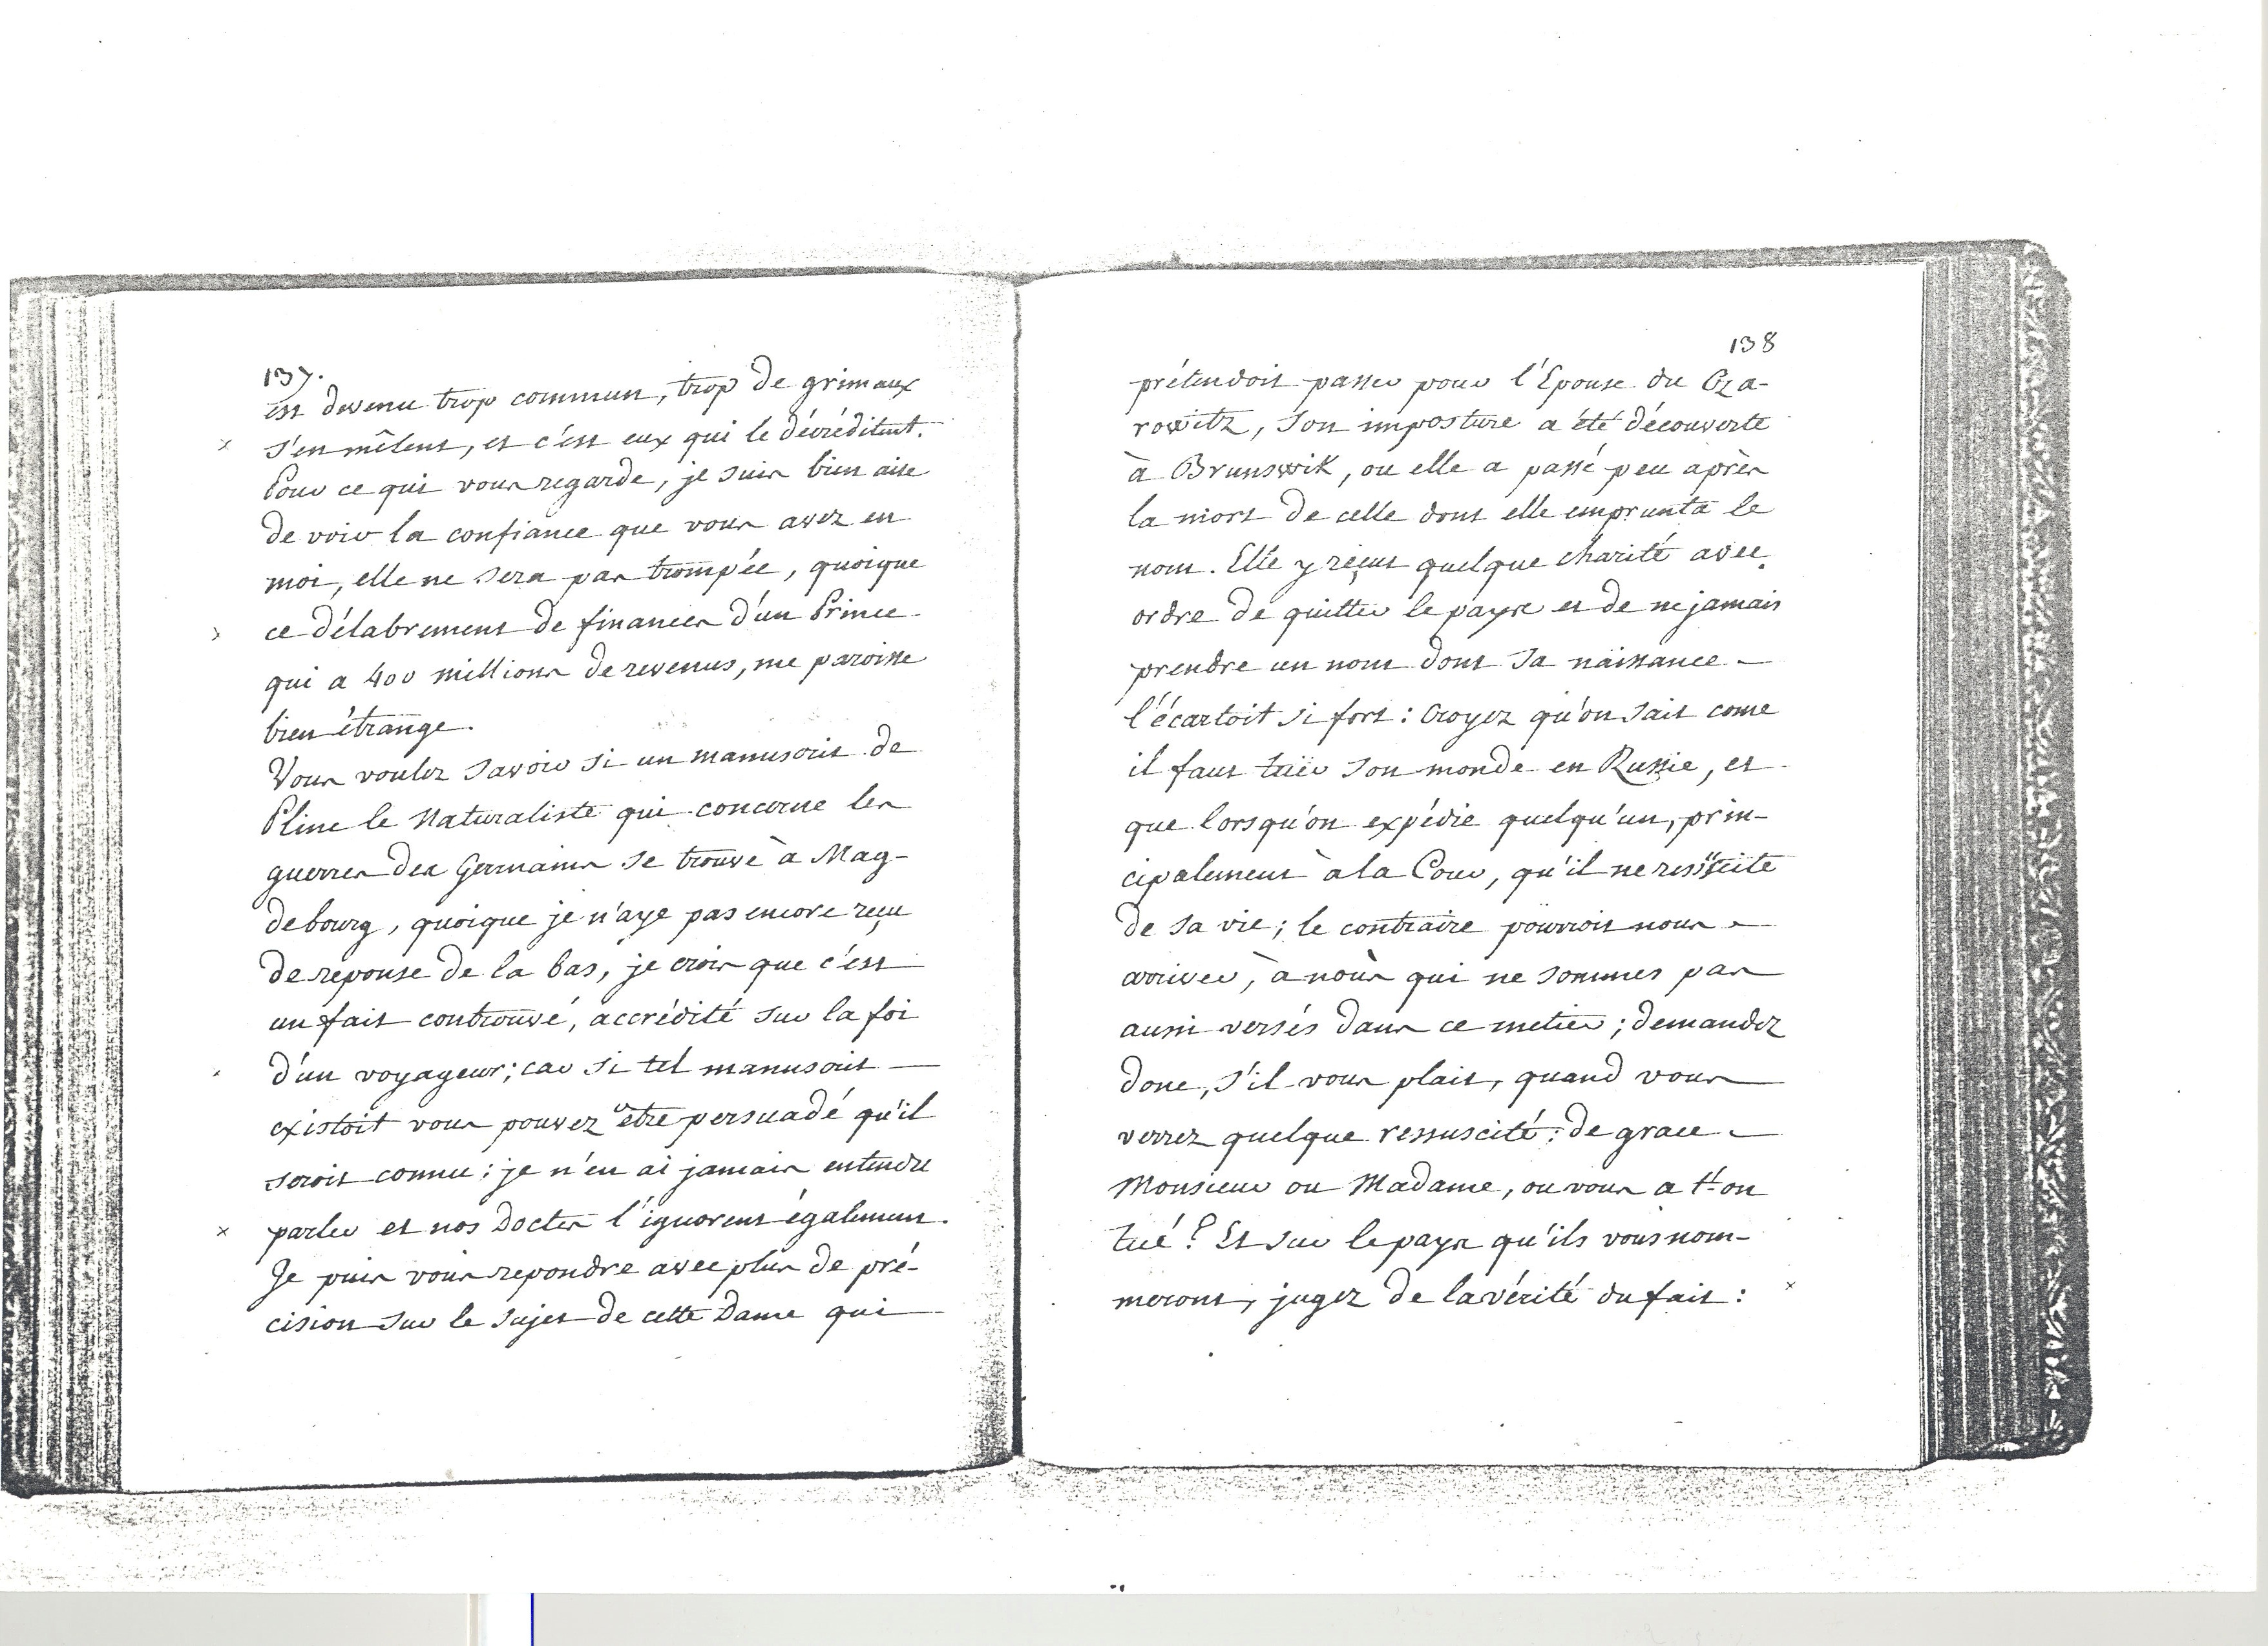 137.
est devenu trop commun, trop de grimaux
s'en mêlent, et c'est eux qui le décréditent.
Pour ce qui vous regarde, je suis bien aise
de voir la confiance que vous avez en
moi, elle ne sera pas trompée, quoique
ce délabrement de finances d'un Prince
qui a 400 millions de revenus, me paroisse
bien étrange.
Vous voulez savoir si un manuscrit de
Pline le Naturaliste qui concerne les
guerres des Germains se trouve à Mag-
debourg, quoique je n'aye pas encore reçu
de reponse de la bas, je crois que c'est
un fait controuvé, accrédité sur la foi
d'un voyageur; car si tel manuscrit
existoit vous pouvez etre persuadé qu'il
seroit connu: je n'en ai jamais entendu
parler et nos Doctes l'ignorent également.
Je puis vous repondre avec plus de pré-
cision sur le sujet de cette Dame qui
138
prétendoit passer pour l'Epouse du Cza-
rowitz, son imposture a été découverte
à Brunswik, ou elle a passé peu après
la mort de celle dont elle emprunta le
nom. Elle y reçut quelque charité avec
ordre de quitter le pays et de ne jamais
prendre un nom dont sa naissance
l'écartoit si fort: Croyez qu'on sait come
il faut tuer son monde en Russie, et
que lorsqu'on expédie quelqu'un, prin-
cipalement à la Cour, qu'il ne ressuscite
de sa vie; le contraire pourroit nous
arriver, à nous qui ne sommes pas
aussi versés dans ce metier; demandez
donc, s'il vous plait, quand vous
verrez quelque ressuscité: de grace
Monsieur ou Madame, ou vous a t-on
tué? Et sur le pays qu'ils vous nom-
meront, jugez de la vérité du fait: